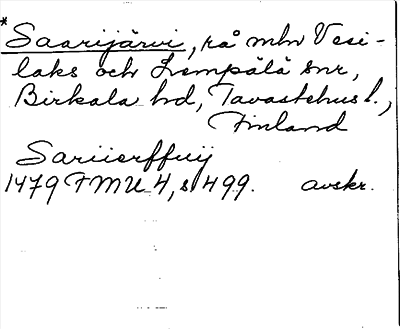 *
Saarijärvi, rå mln Vesi-
laks och Lempälä snr,
Birkala hd, Tavastehus l.,
Finland
Sariierffuij
1479 FMU 4, s 499. avskr.